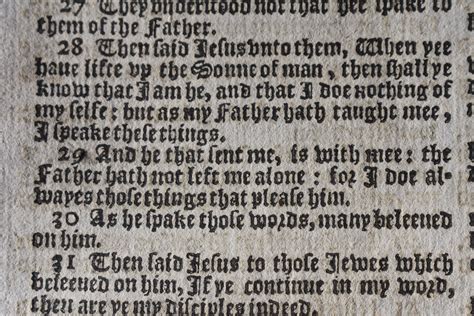 27 They understood not that hee spake to
them of the Father.
28 Then said Jesus vnto them, When yee
haue lift vp the Sonne of man, then shall ye
know that I am he, and that I doe nothing of
my selfe: but as my Father hath taught mee,
I speake these things.
29 And he that sent me, is with mee: the
Father hath not left me alone: for I doe al-
wayes those things that please him.
30 As he spake those words, many beleeued
on him.
31 Then said Jesus to those Jewes which
beleeued on him, If ye continue in my word,
then are ye my disciples indeed.